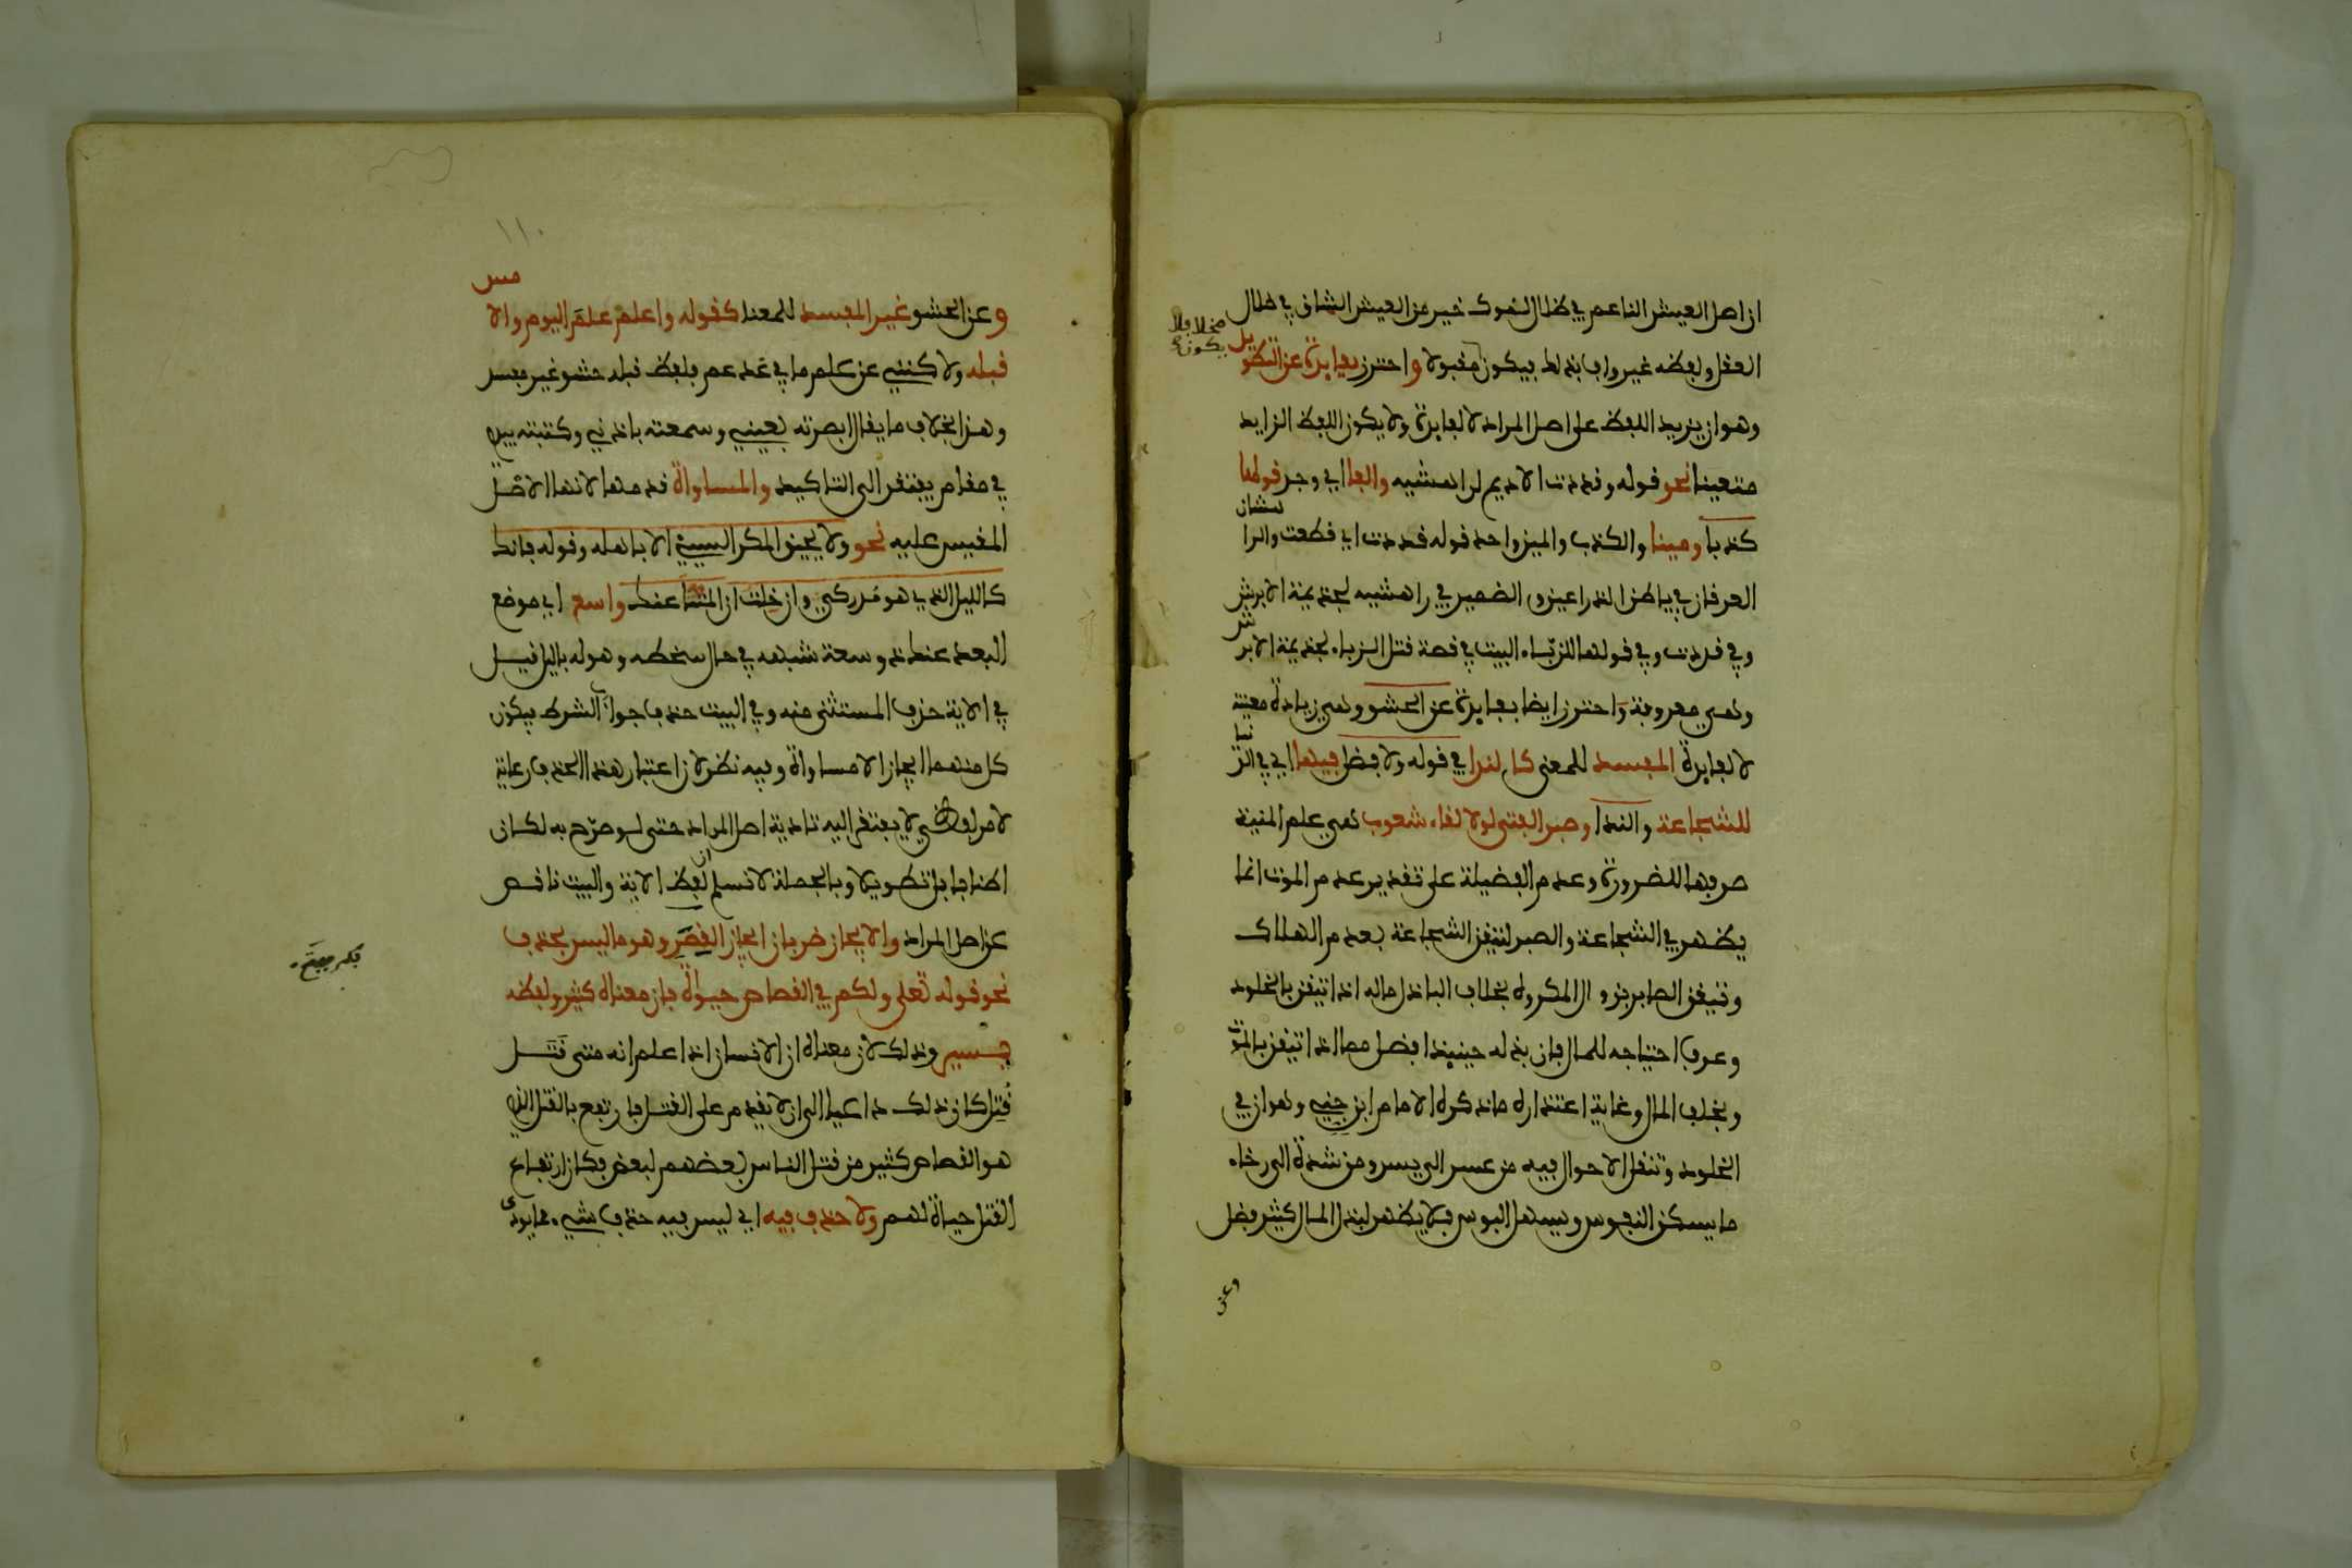 ان اصل العيش الناعم في ظلال النوك خير من العيش الشاق في ظلال
العقل ولفظه غير واف بذلك فيكون مخلا فلا يكون مقبولا واحترز بفايدة عن التطويل
وهو ان يزيد اللفظ على اصل المراد لا لفايدة ولا يكون اللفظ الزايد
متعينا نحو قوله وقددت الاديم لراهشيه والفا اي وجد قولها
كذبا ومينا والكذب والمين واحد قوله قددت اي قطعت والراهشان
العرقان في باطن الذراعين والضمير في راهشيه لجذيمة الابرش
وفي قددت وفي قولها للزباء البيت في قصة قتل الزباء لجذيمة الابرش
وهي معروفة واحترز ايضا بفايدة عن الحشو وهي زيادة معينة
لا لفايدة المفسد للمعنى كالندا في قوله ولا فضل فيها اي في الدنيا
للشجاعة والندا وصبر الفتى لولا لقاء شعوب هي علم المنية
صرفها للضرورة وعدم الفضيلة على تقدير عدم الموت انما
يظهر في الشجاعة والصبر لتيقن الشجاعة بعدم الهلاك
وتيقن الصابر بزوال المكروه بخلاف الباذل ماله اذا تيقن بالخلود
وعرف احتياجه للمال فان بذله حينيذ افضل مما اذا تيقن بالموت
وبخلف المال وغاية اعتذاره ما ذكره الامام ابن جني وهو ان في
الخلود وتنقل الاحوال فيه من عسر الى يسر ومن شدة الى رخاء
ما يسكن النفوس ويسهل البوس فلا يظهر لبذل المال كثير فضل
وعن
١١٠
وعن الحشو غير المفسد للمعنا كقوله واعلم علم اليوم والامس
قبله ولاكنني عن علم ما في غد عم فلفظ قبله حشو غير مفسد
وهذا بخلاف ما يقال ابصرته بعيني وسمعته باذني وكتبته بيدي
في مقام يفتقر الى التاكيد والمساواة قدمها لانها الاصل
المقيس عليه نحو ولا يحيق المكر السيئ الا باهله وقوله فانك
كالليل الذي هو مدركي وان خلت ان المنتاى عنك واسع اي موضع
البعد عنك ذو سعة شبهه في حال سخطه وهوله بالليل قيل
في الاية حذف المستثنى منه وفي البيت حذف جواب الشرط فيكون
كل منهما ايجازا لا مساواة وفيه نظر لان اعتبار هذا الحذف رعاية
لامر لفظي لا يفتقر اليه تادية اصل المراد حتى لو صرح به لكان
اطنابا بل تطويلا وبالجملة لا نسلم ان لفظ الاية والبيت ناقص
عن اصل المراد والايجاز ضربان ايجاز القصر وهو ما ليس بحذف
نحو قوله تعلى ولكم في القصاص حيوة فان معناه كثير ولفظه
يسير وذلك لان معناه ان الانسان اذا علم انه متى قتل
قتل كان ذلك داعيا الى ان لا يقدم على القتل فارتفع بالقتل الذي
هو القصاص كثير من قتل الناس بعضهم لبعض فكان ارتفاع
القتل حياة لهم ولا حذف فيه اي ليس فيه حذف شيء مما يودى